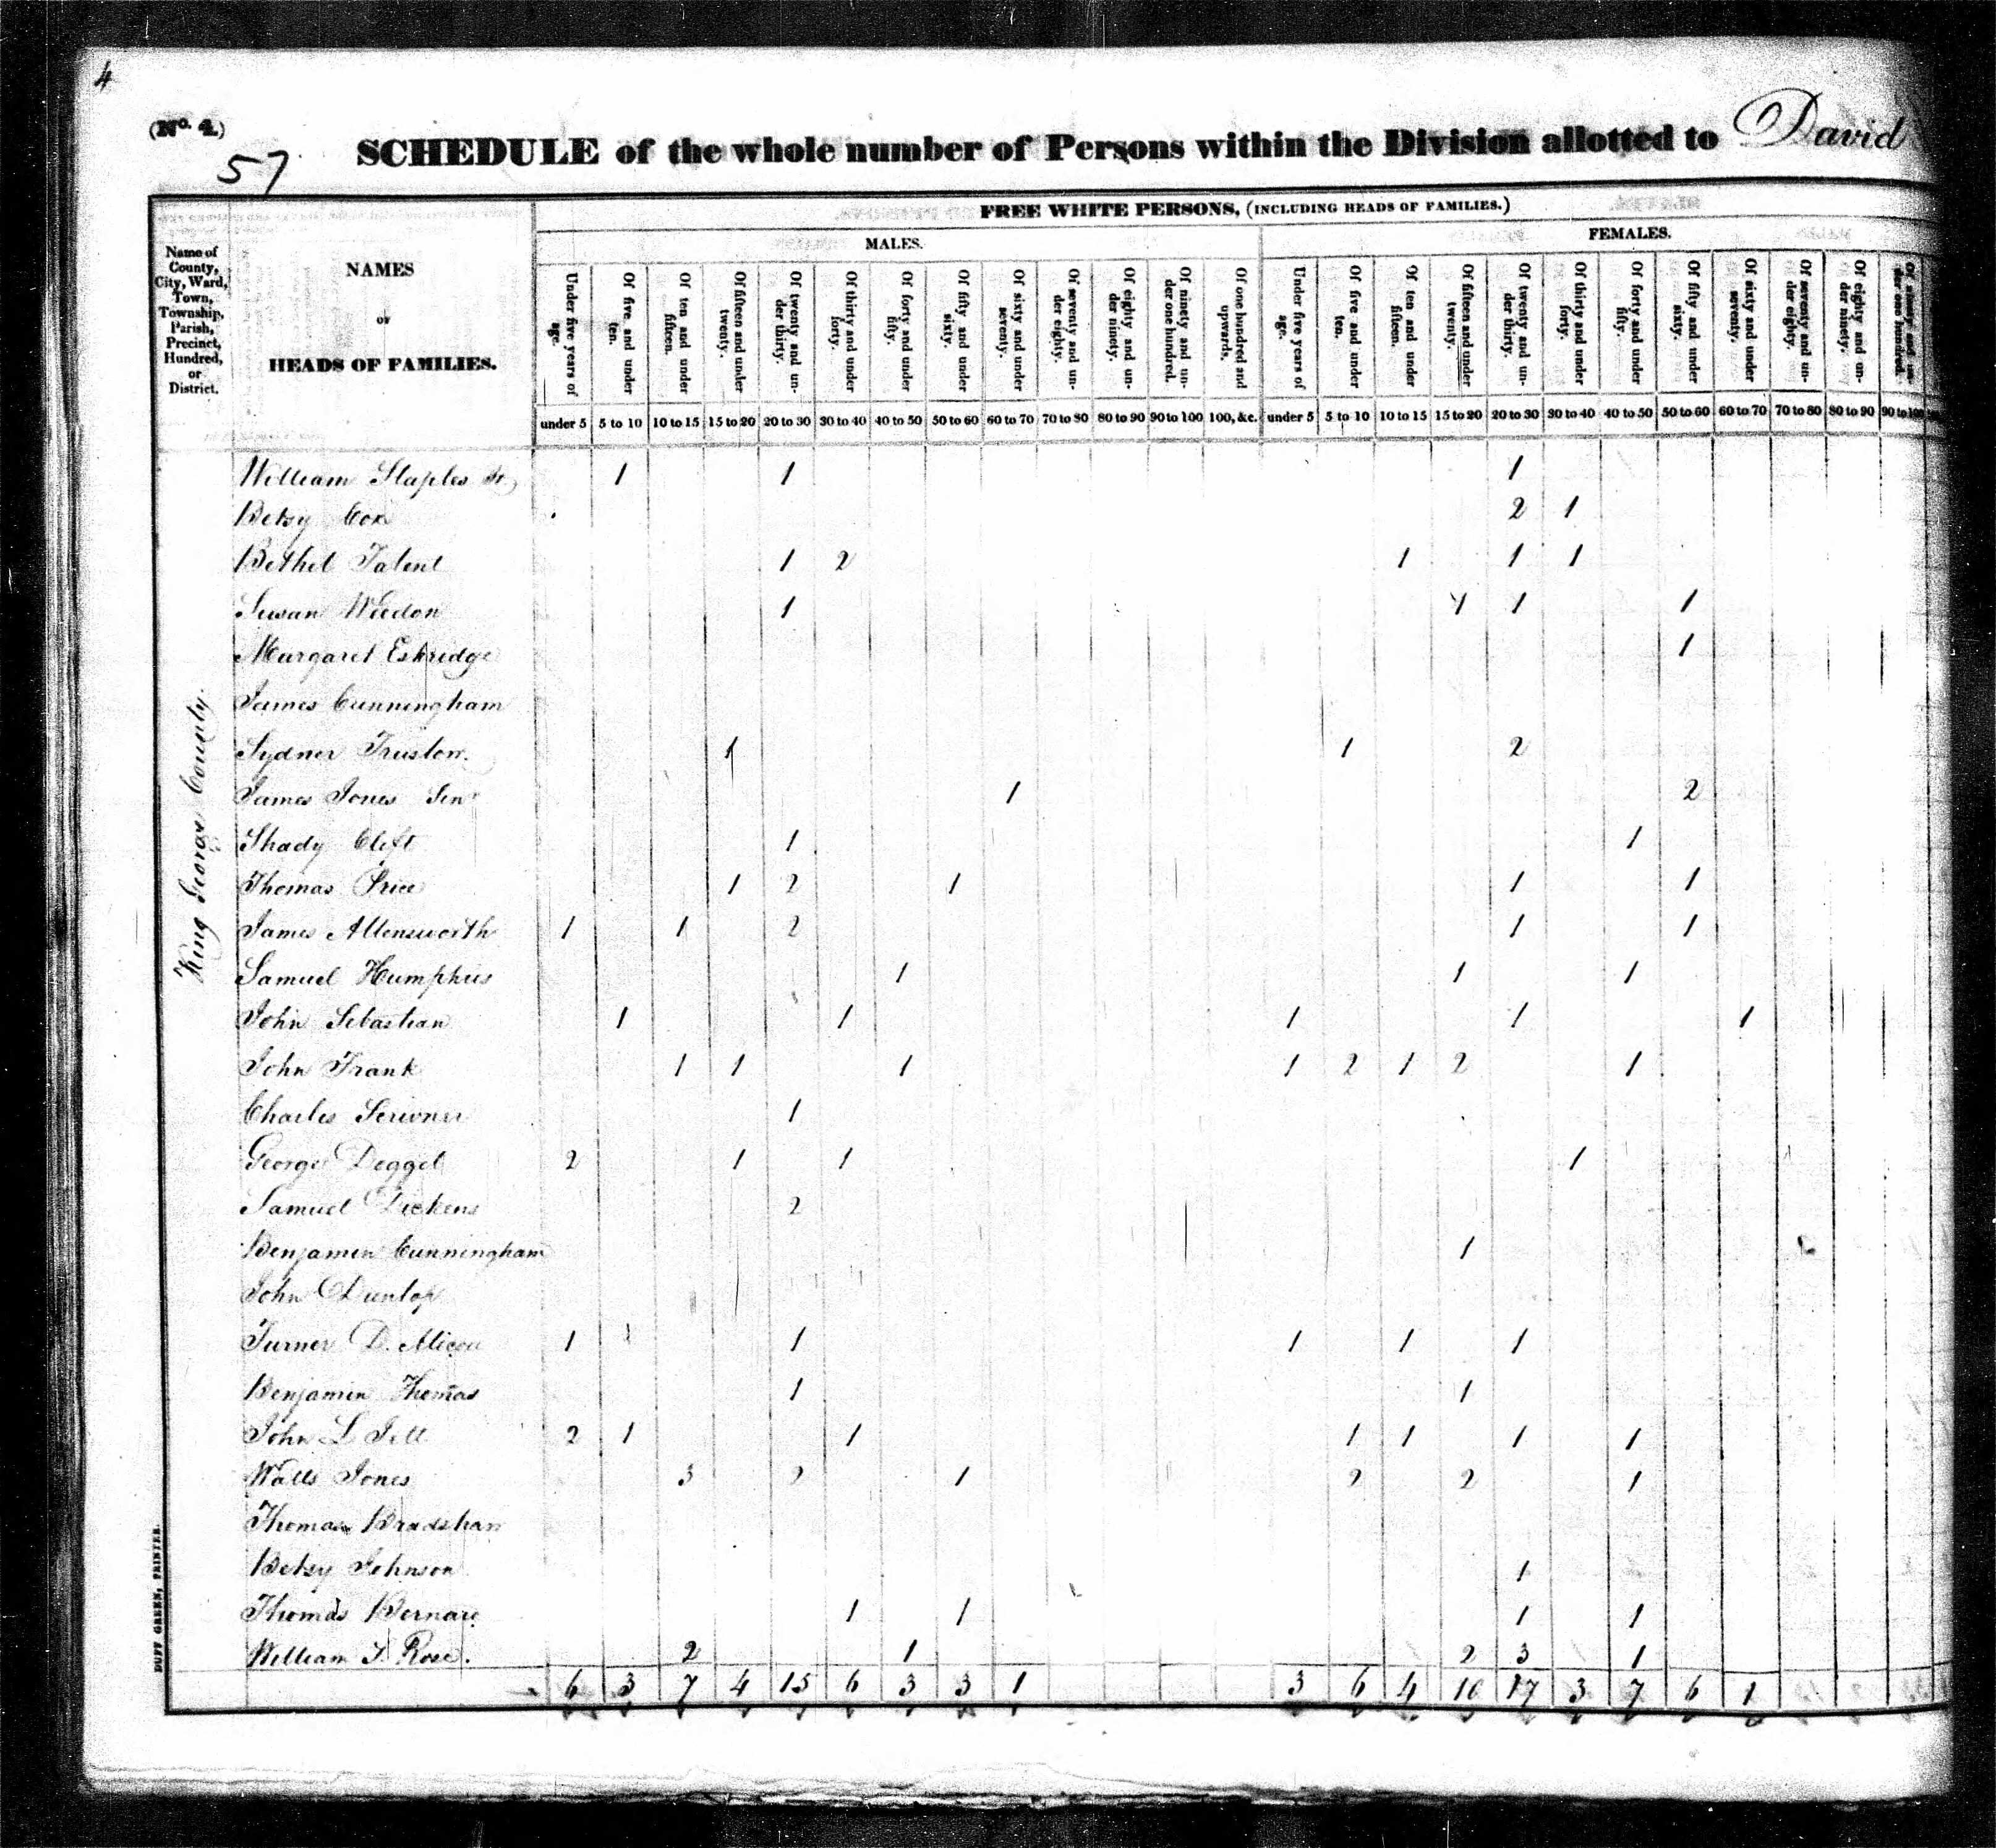 4
(No. 4.)
57
SCHEDULE of the whole number of Persons within the Division allotted to David
FREE WHITE PERSONS, (INCLUDING HEADS OF FAMILIES.)
MALES. FEMALES.
Name of County, City, Ward, Town, Township, Parish, Precinct, Hundred, or District.
NAMES
OF
HEADS OF FAMILIES.
Under five years of age. Of five and under ten. Of ten and under fifteen. Of fifteen and under twenty. Of twenty and under thirty. Of thirty and under forty. Of forty and under fifty. Of fifty and under sixty. Of sixty and under seventy. Of seventy and under eighty. Of eighty and under ninety. Of ninety and under one hundred. Of one hundred and upwards. Under five years of age. Of five and under ten. Of ten and under fifteen. Of fifteen and under twenty. Of twenty and under thirty. Of thirty and under forty. Of forty and under fifty. Of fifty and under sixty. Of sixty and under seventy. Of seventy and under eighty. Of eighty and under ninety. Of ninety and under one hundred.
under 5 5 to 10 10 to 15 15 to 20 20 to 30 30 to 40 40 to 50 50 to 60 60 to 70 70 to 80 80 to 90 90 to 100 100, &c. under 5 5 to 10 10 to 15 15 to 20 20 to 30 30 to 40 40 to 50 50 to 60 60 to 70 70 to 80 80 to 90 90 to 100
King George County.
William Staples 1 1 1
Betsy Cox 2 1
Bethel Talent 1 2 1 1 1
Susan Weedon 1 1 1 1
Margaret Eskridge 1
James Cunningham
Sydner Truslow. 1 1 2
James Jones Senr 1 2
Shady Clift 1 1
Thomas Price 1 2 1 1 1
James Allensworth 1 1 2 1 1
Samuel Humphries 1 1 1
John Sebastian 1 1 1 1 1
John Frank 1 1 1 1 2 1 2 1
Charles Scrivner 1
George Doggel 2 1 1 1
Samuel Dickens 2
Benjamin Cunningham 1
John Dunlop
Turner D. 1 1 1 1 1 1
Benjamin Thomas 1 1
John L Jett 2 1 1 1 1 1 1
Watts Jones 3 2 1 2 2 1
Thomas Bradshaw
Betsy Johnson 1
Thomas Bernard 1 1 1 1
William J. Rose. 2 1 2 3 1
6 3 7 4 15 6 3 3 1 3 6 4 10 17 3 7 6 1
DUFF GREEN, PRINTER.